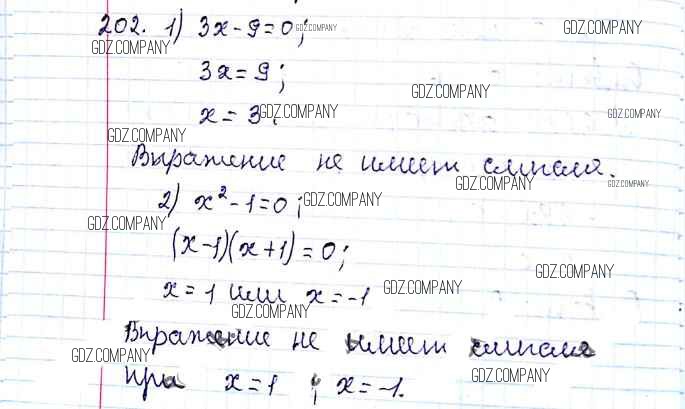 202. 1) 3x-9=0; GDZ.COMPANY GDZ.COMPANY
GDZ.COMPANY
3x=9;
GDZ.COMPANY
x=3. GDZ.COMPANY GDZ.COMPANY
GDZ.COMPANY
Выражение не имеет смысла.
GDZ.COMPANY GDZ.COMPANY
2) x²-1=0; GDZ.COMPANY
GDZ.COMPANY
(x-1)(x+1)=0;
GDZ.COMPANY
x=1 или x=-1 GDZ.COMPANY
GDZ.COMPANY
Выражение не имеет смысла
GDZ.COMPANY
при x=1 ; x=-1. GDZ.COMPANY